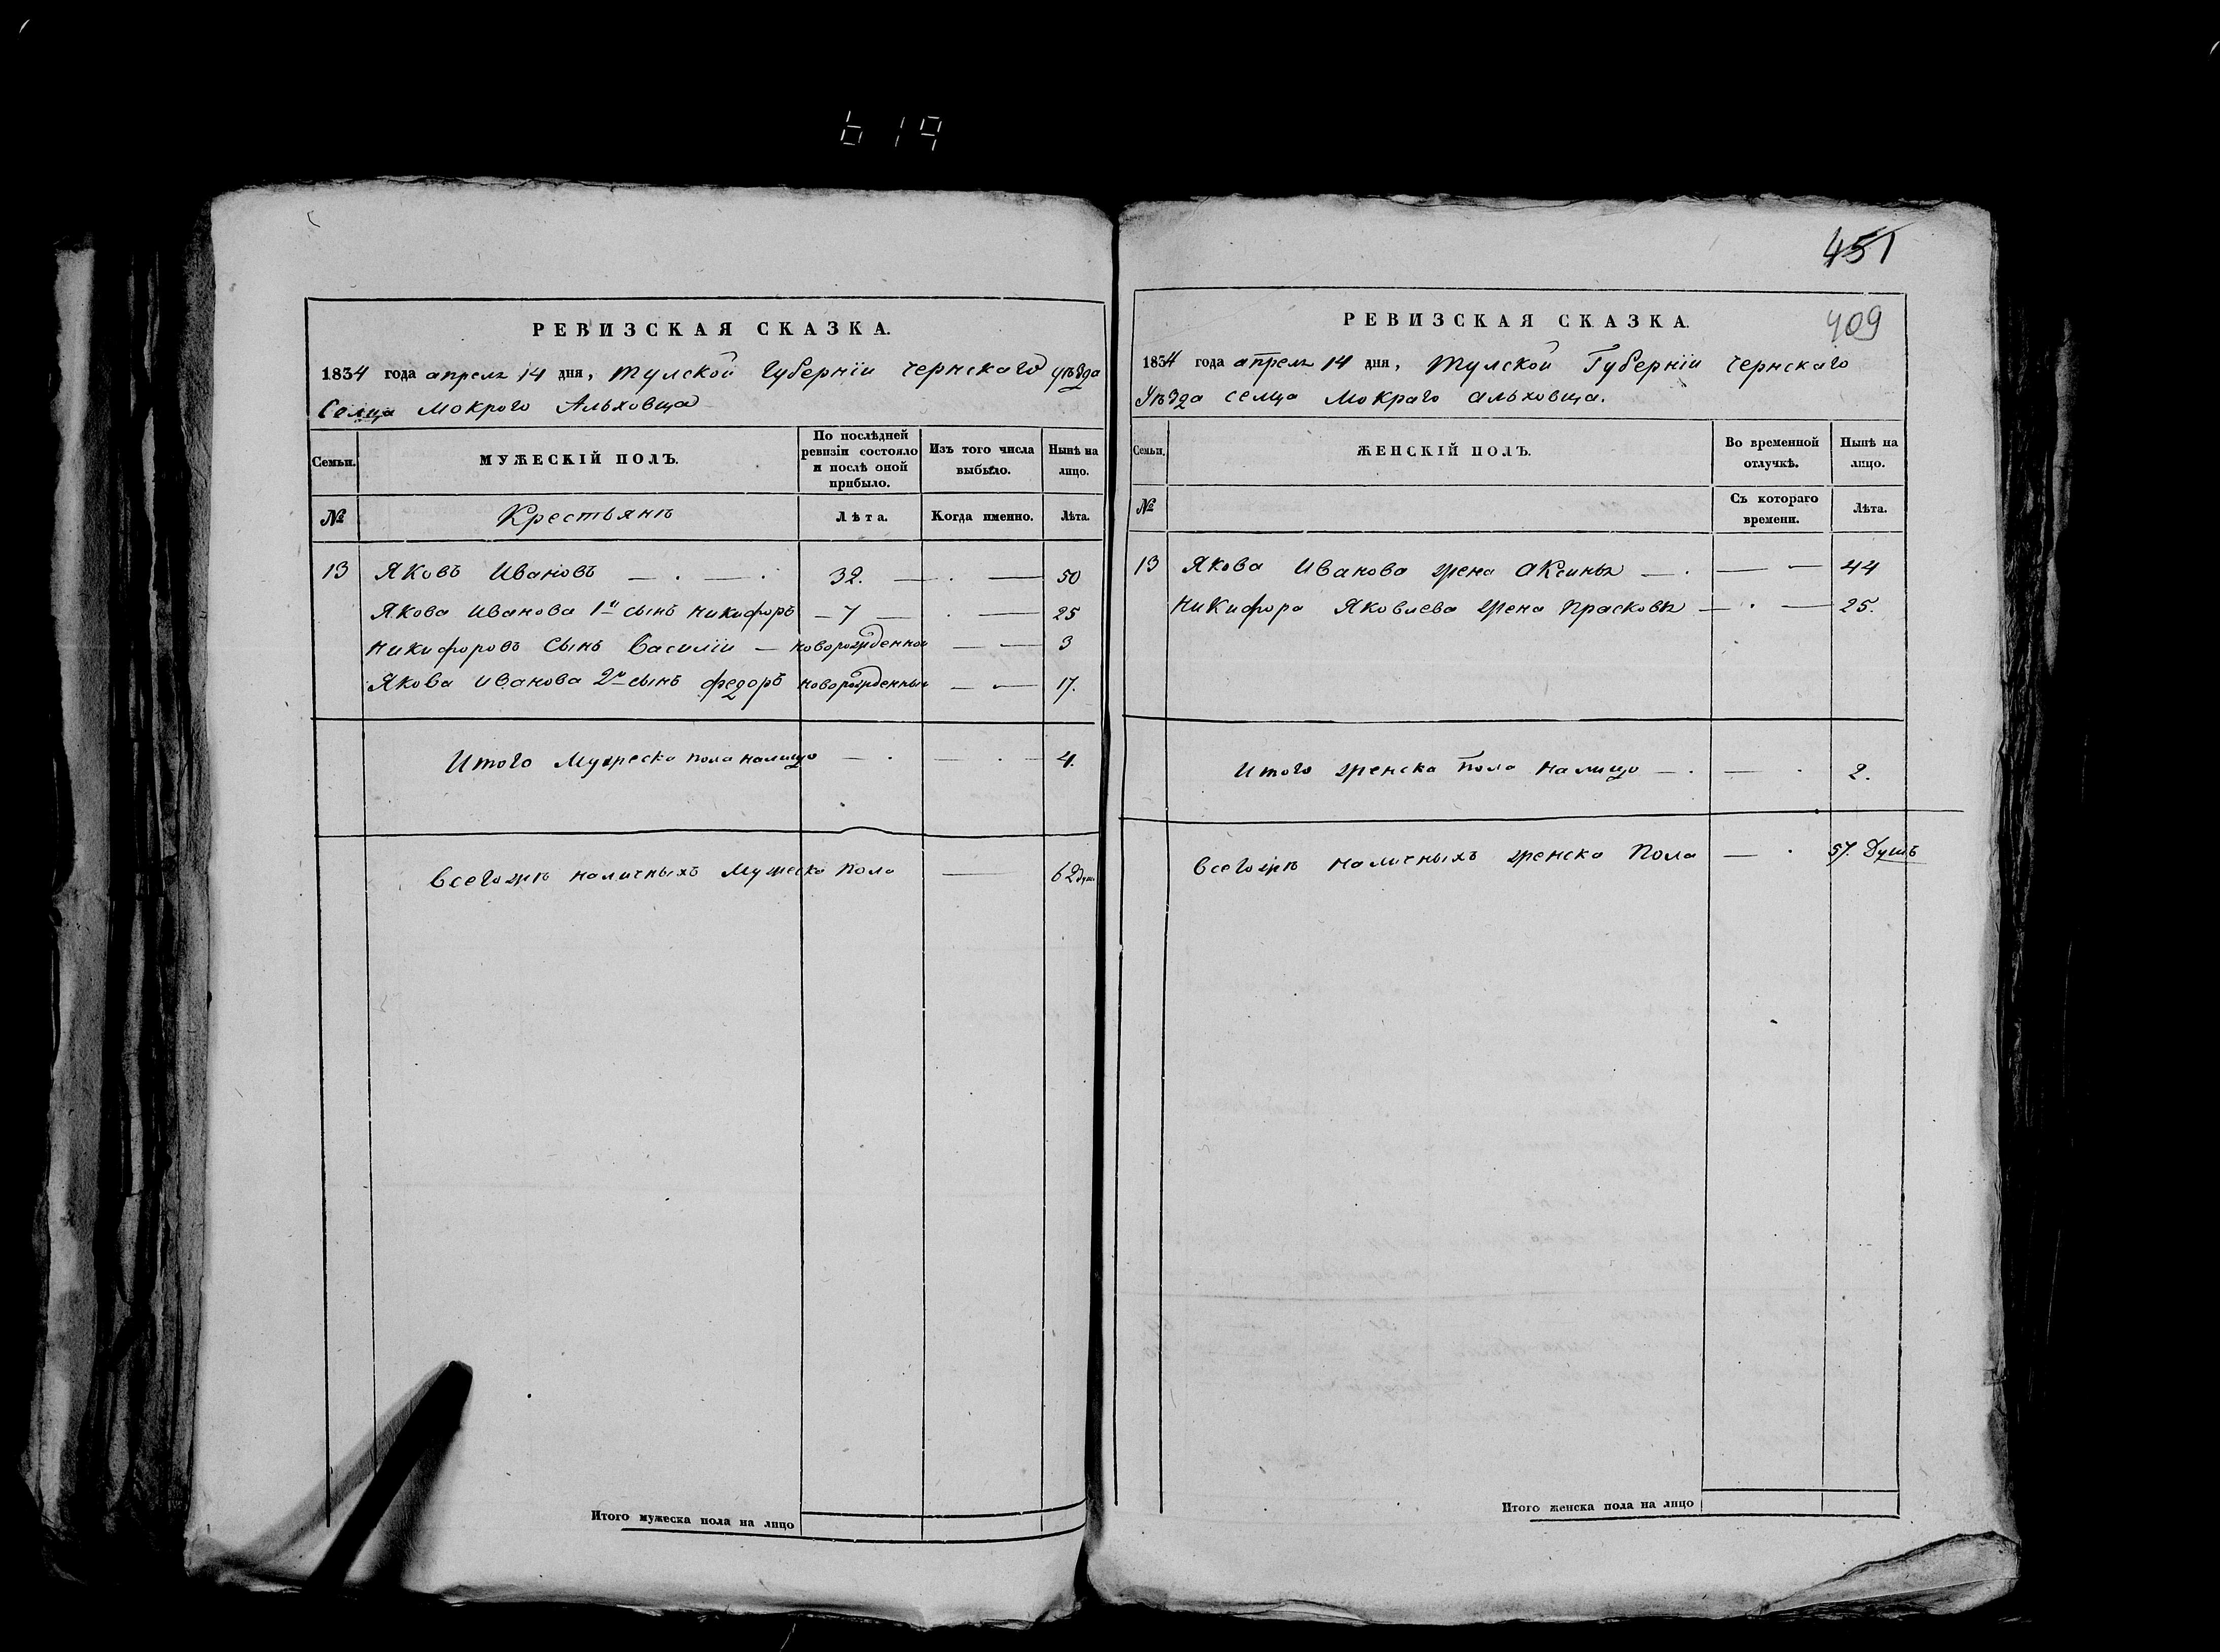 619
РЕВИЗСКАЯ СКАЗКА.
1834 года апреля 14 дня, Тулской Губерніи Чернскаго уѣзда
Селца Мокрого Альховца
Семьи.
МУЖЕСКІЙ ПОЛЪ.
По послѣдней ревизіи состояло и послѣ оной прибыло.
Изъ того числа выбыло.
Нынѣ на лицо.
№
Крестьянъ
Лѣта.
Когда именно.
Лѣта.
13 Яковъ Ивановъ — . — . 32. — . — 50
Якова Иванова 1й сынъ Никифоръ — 7 — . — 25
Никифоровъ Сынъ Василіи — новорожденнои — — 3
Якова Иванова 2й сынъ Федоръ новорожденныи — — 17.
Итого Мужеска пола налицо — . — . — 4.
Всегожъ наличныхъ Мужеска пола — 62 душ.
Итого мужеска пола на лицо
451
409
РЕВИЗСКАЯ СКАЗКА.
1834 года апреля 14 дня, Тулской Губерніи Чернскаго
Уѣзда селца Мокраго альховца.
Семьи.
ЖЕНСКІЙ ПОЛЪ.
Во временной отлучкѣ.
Нынѣ на лицо.
№
Съ котораго времени.
Лѣта.
13 Якова Иванова жена Аксинья — . — — 44
Никифора Яковлева жена Прасковя — . — 25.
Итого женска пола налицо — . — . 2.
Всегожъ наличныхъ женска Пола — . 57. Душъ
Итого женска пола на лицо